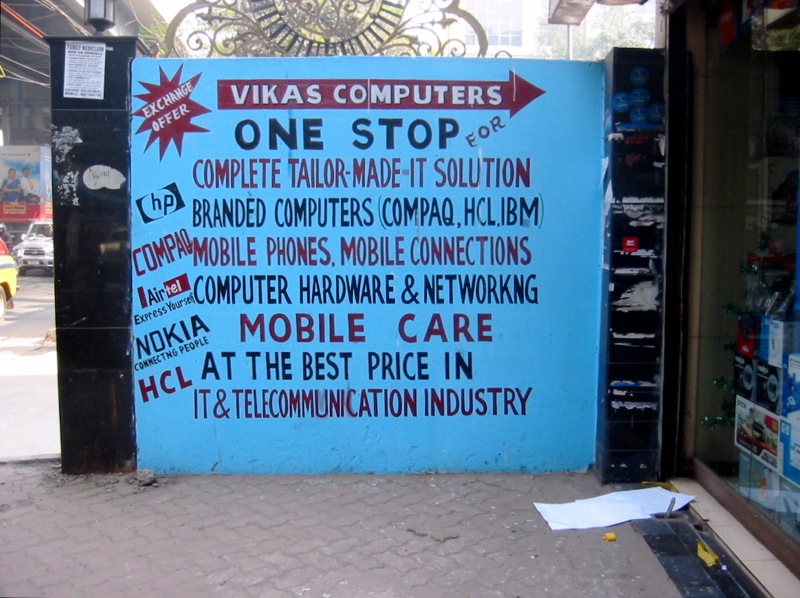 EXCHANGE
OFFER
VIKAS COMPUTERS
ONE STOP FOR
COMPLETE TAILOR-MADE-IT SOLUTION
hp
BRANDED COMPUTERS (COMPAQ, HCL.IBM)
COMPAQ
MOBILE PHONES, MOBILE CONNECTIONS
Airtel
Express Yourself
COMPUTER HARDWARE & NETWORKNG
NOKIA
CONNECTNG PEOPLE
MOBILE CARE
HCL
AT THE BEST PRICE IN
IT & TELECOMMUNICATION INDUSTRY